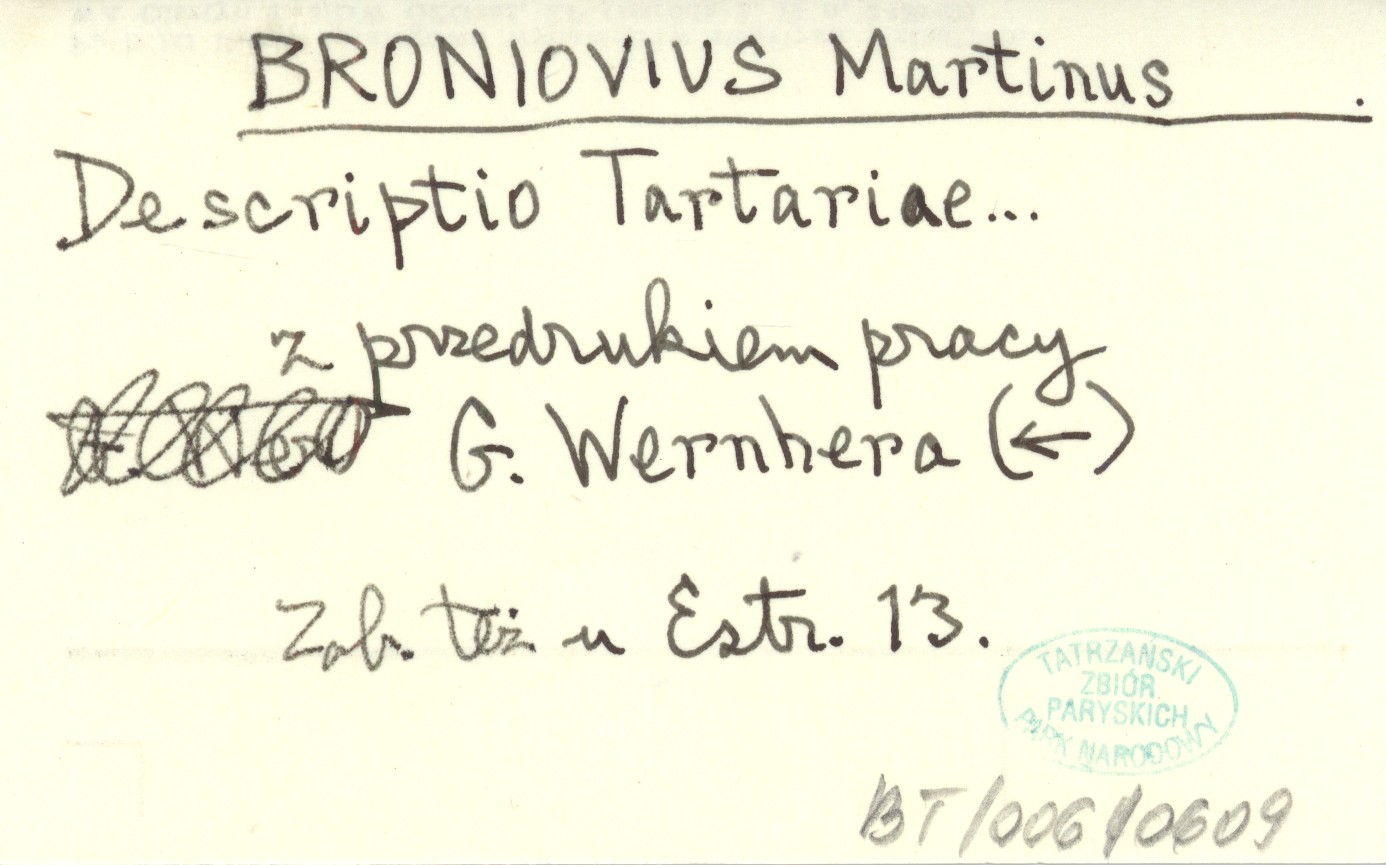 BRONIOVIUS Martinus .
Descriptio Tartariae...
z przedrukiem pracy
G. Wernhera (←)
Zob. też u Estr. 13.
TATRZAŃSKI
ZBIÓR
PARYSKICH
PARK NARODOWY
BT/006/0609